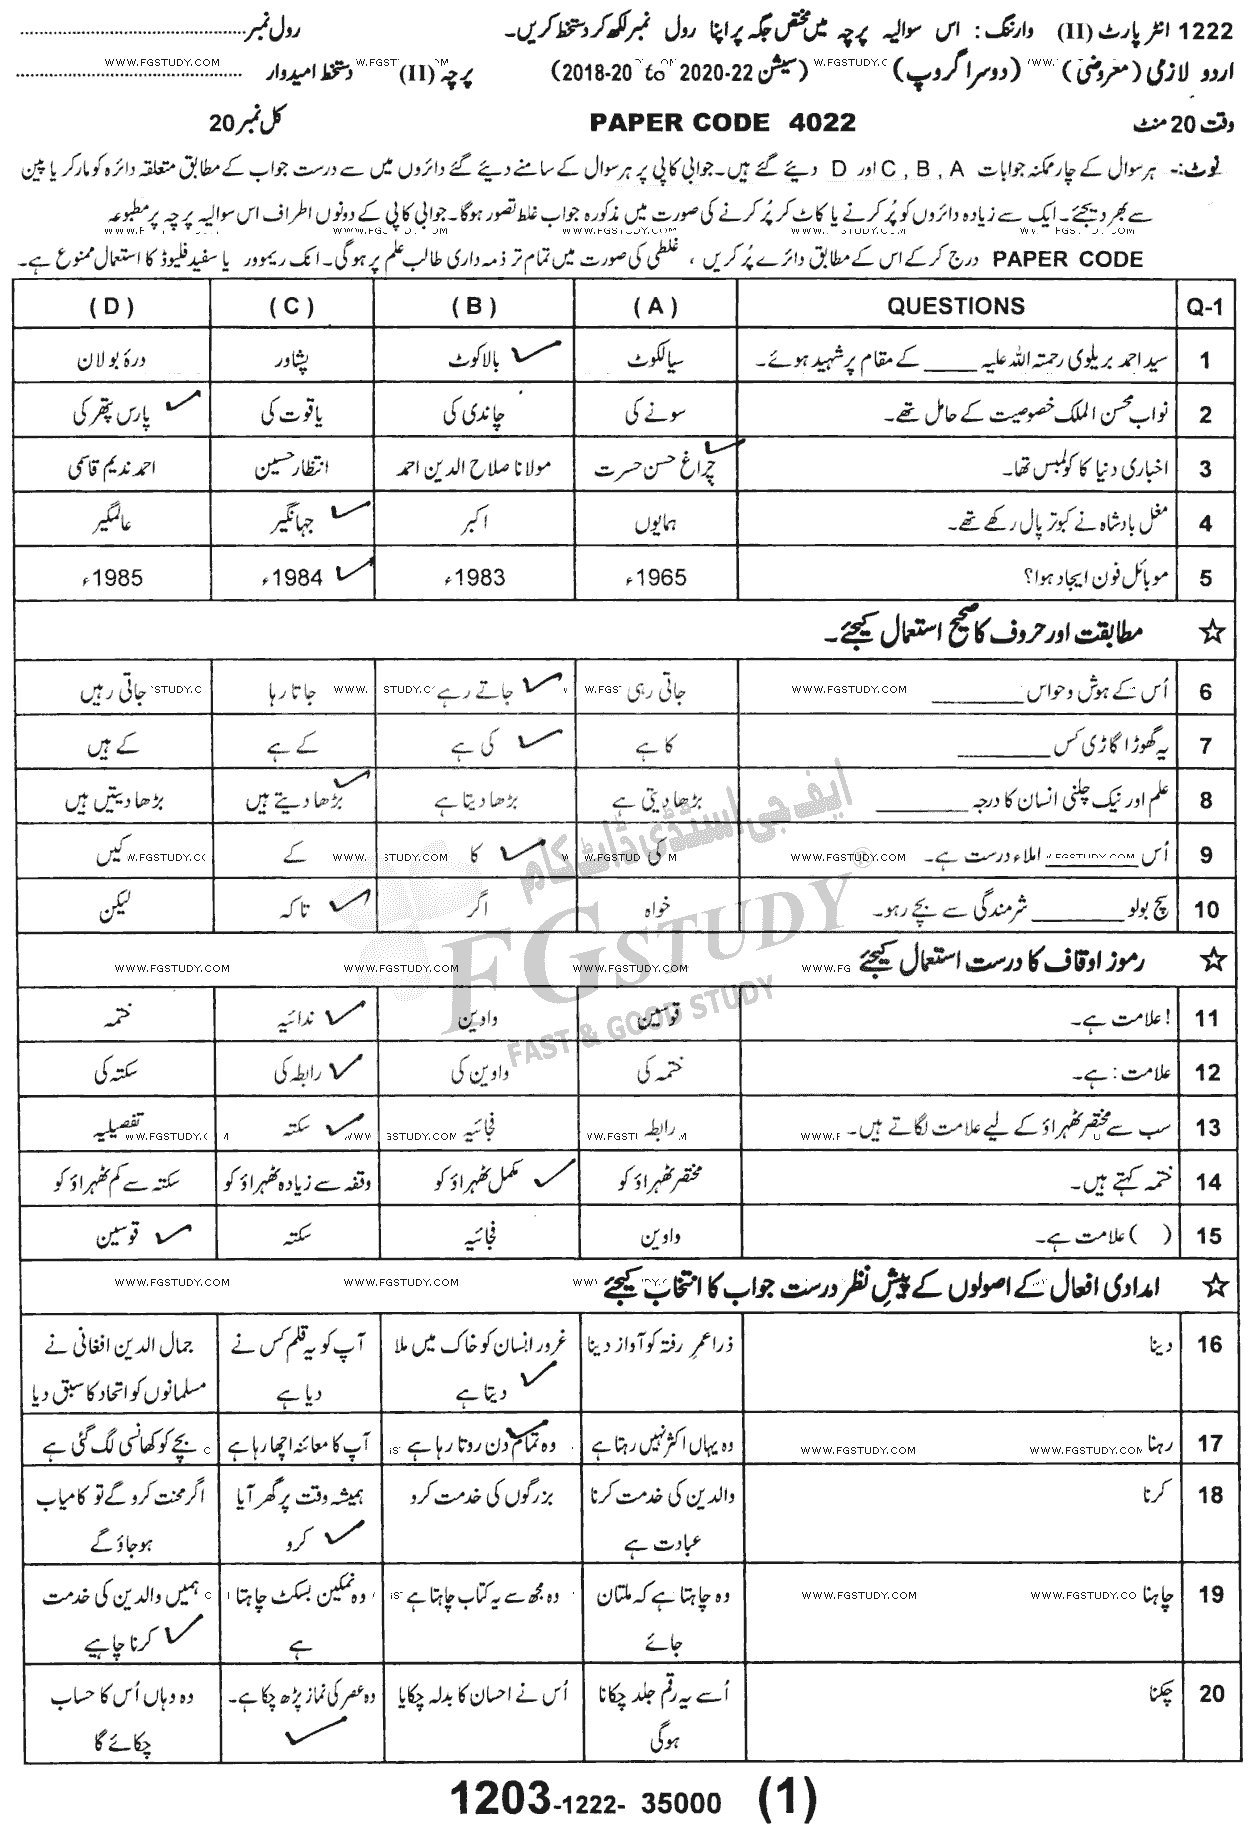 1222 انٹر پارٹ (II) وارننگ : اس سوالیہ پرچہ میں مختص جگہ پر اپنا رول نمبر لکھ کر دستخط کریں۔ رول نمبر
اردو لازمی (معروضی) (دوسرا گروپ) (سیشن 22-2020 to 20-2018) پرچہ (II) دستخط امیدوار
وقت 20 منٹ PAPER CODE 4022 کل نمبر 20
نوٹ:- ہر سوال کے چار ممکنہ جوابات A , B , C اور D دیئے گئے ہیں۔ جوابی کاپی پر ہر سوال کے سامنے دیئے گئے دائروں میں سے درست جواب کے مطابق متعلقہ دائرہ کو مارکر یا پین
سے بھر دیجئے۔ ایک سے زیادہ دائروں کو پُر کرنے یا کاٹ کر پُر کرنے کی صورت میں مذکورہ جواب غلط تصور ہوگا۔ جوابی کاپی کے دونوں اطراف اس سوالیہ پرچہ پر مطبوعہ
PAPER CODE درج کر کے اس کے مطابق دائرے پُر کریں ، غلطی کی صورت میں تمام تر ذمہ داری طالب علم پر ہوگی۔ انک ریموور یا سفید فلیوڈ کا استعمال ممنوع ہے۔
Q-1 QUESTIONS (A) (B) (C) (D)
1 سید احمد بریلوی رحمتہ اللہ علیہ ____ کے مقام پر شہید ہوئے۔ سیالکوٹ بالاکوٹ پشاور درۂ بولان
2 نواب محسن الملک خصوصیت کے حامل تھے۔ سونے کی چاندی کی یاقوت کی پارس پتھر کی
3 اخباری دنیا کا کولمبس تھا۔ چراغ حسن حسرت مولانا صلاح الدین احمد انتظار حسین احمد ندیم قاسمی
4 مغل بادشاہ نے کبوتر پال رکھے تھے۔ ہمایوں اکبر جہانگیر عالمگیر
5 موبائل فون ایجاد ہوا؟ 1965ء 1983ء 1984ء 1985ء
☆ مطابقت اور حروف کا صحیح استعمال کیجئے۔
6 اُس کے ہوش و حواس ________ جاتی رہی جاتے رہے جاتا رہا جاتی رہیں
7 یہ گھوڑا گاڑی کس ________ کا ہے کی ہے کے ہے کے ہیں
8 علم اور نیک چلنی انسان کا درجہ ________ بڑھا دیتی ہے بڑھا دیتا ہے بڑھا دیتے ہیں بڑھا دیتیں ہیں
9 اُس ________ املاء درست ہے۔ کی کا کے کیں
10 سچ بولو ________ شرمندگی سے بچے رہو۔ خواہ اگر تاکہ لیکن
☆ رموز اوقاف کا درست استعمال کیجئے
11 ! علامت ہے۔ قوسین واوین ندائیہ ختمہ
12 علامت : ہے۔ ختمہ کی واوین کی رابطہ کی سکتہ کی
13 سب سے مختصر ٹھہراؤ کے لیے علامت لگاتے ہیں۔ رابطہ فجائیہ سکتہ تفصیلیہ
14 ختمہ کہتے ہیں۔ مختصر ٹھہراؤ کو مکمل ٹھہراؤ کو وقفہ سے زیادہ ٹھہراؤ کو سکتہ سے کم ٹھہراؤ کو
15 ( ) علامت ہے۔ واوین فجائیہ سکتہ قوسین
☆ امدادی افعال کے اصولوں کے پیشِ نظر درست جواب کا انتخاب کیجئے
16 دینا ذرا عمرِ رفتہ کو آواز دینا غرور انسان کو خاک میں ملا آپ کو یہ قلم کس نے جمال الدین افغانی نے
دیتا ہے دیا ہے مسلمانوں کو اتحاد کا سبق دیا
17 رہنا وہ یہاں اکثر نہیں رہتا ہے وہ تمام دن روتا رہا ہے آپ کا معائنہ اچھا رہا ہے بچے کو کھانسی لگ گئی ہے
18 کرنا والدین کی خدمت کرنا بزرگوں کی خدمت کرو ہمیشہ وقت پر گھر آیا اگر محنت کرو گے تو کامیاب
عبادت ہے کرو ہو جاؤ گے
19 چاہنا وہ چاہتا ہے کہ ملتان وہ مجھ سے یہ کتاب چاہتا ہے وہ نمکین بسکٹ چاہتا ہمیں والدین کی خدمت
جائے ہے کرنا چاہیے
20 چکنا اُسے یہ رقم جلد چکانا اُس نے احسان کا بدلہ چکایا وہ عصر کی نماز پڑھ چکا ہے۔ وہ وہاں اُس کا حساب
ہوگی چکائے گا
1203-1222- 35000 (1)
ایف جی اسٹڈی ڈاٹ کام
FG STUDY ®
FAST & GOOD STUDY
WWW.FGSTUDY.COM